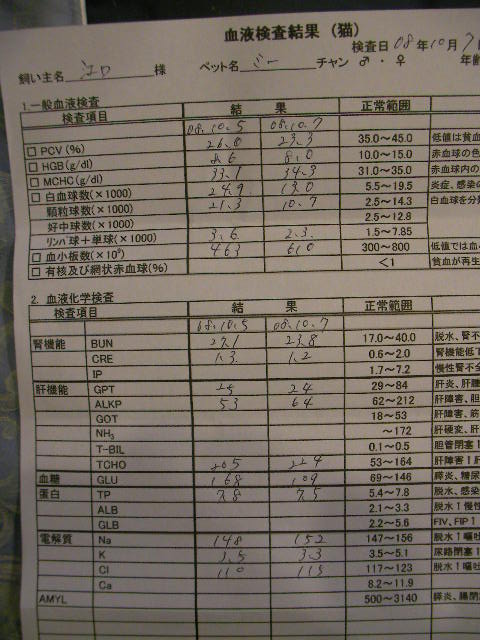 血液検査結果（猫）
検査日 08年10月7
飼い主名 江口 様 ペット名 ミー チャン ♂・♀ 年齢
1.一般血液検査
検査項目 結果 正常範囲
08.10.5 08.10.7
□ PCV(%) 26.0 23.3 35.0～45.0 低値は貧血
□ HGB(g/dl) 8.6 8.0 10.0～15.0 赤血球の色
□ MCHC(g/dl) 33.1 34.3 31.0～35.0 赤血球内の
□ 白血球数(×1000) 24.9 13.0 5.5～19.5 炎症、感染の
顆粒球数(×1000) 21.3 10.7 2.5～14.3 白血球を分類
好中球数(×1000) 2.5～12.8
リンパ球＋単球(×1000) 3.6 2.3 1.5～7.85
□ 血小板数(×10⁹) 463 610 300～800 低値では血
□ 有核及び網状赤血球(%) <1 貧血が再生
2. 血液化学検査
検査項目 結果 正常範囲
08.10.5 08.10.7
腎機能 BUN 27.1 23.8 17.0～40.0 脱水、腎不
CRE 1.3 1.2 0.6～2.0 腎機能低下
IP 1.7～7.2 慢性腎不全
肝機能 GPT 25 24 29～84 肝炎、肝腫
ALKP 53 64 62～212 肝障害、胆
GOT 18～53 肝障害、筋
NH₃ ～172 肝硬変、肝
T-BIL 0.1～0.5 胆管閉塞！
TCHO 205 224 53～164 肝障害！肝
血糖 GLU 168 109 69～146 膵炎、糖尿
蛋白 TP 7.8 7.5 5.4～7.8 脱水、感染
ALB 2.1～3.3 脱水！慢性
GLB 2.2～5.6 FIV、FIP！
電解質 Na 148 152 147～156 脱水！嘔吐
K 3.5 3.3 3.5～5.1 尿路閉塞！
Cl 110 115 117～123 脱水！嘔吐
Ca 8.2～11.9
AMYL 500～3140 膵炎、腸閉